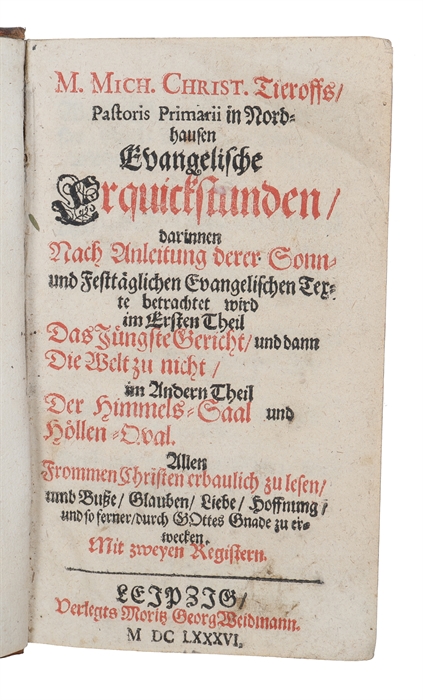 M. MICH. CHRIST. Tieroffs/
Pastoris Primarii in Nord-
hausen
Evangelische
Erquickstunden/
darinnen
Nach Anleitung derer Sonn-
und Festtäglichen Evangelischen Tex-
te betrachtet wird
im Ersten Theil
Das Jüngste Gericht/ und dann
Die Welt zu nicht/
im Andern Theil
Der Himmels-Saal und
Höllen-Qval.
Allen
Frommen Christen erbaulich zu lesen/
unnd Buße/ Glauben/ Liebe/ Hoffnung/
und so ferner/ durch GOttes Gnade zu er-
wecken.
Mit zweyen Registern.
LEJPZJG/
Verlegts Moritz Georg Weidmann.
M DC LXXXVI.